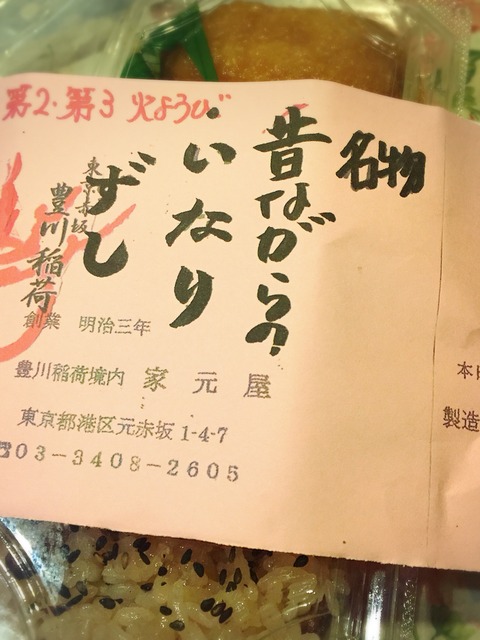 第2・第3 火ようび
名物
昔ながらの
いなり
ずし
東京赤坂
豊川稲荷
創業 明治三年
豊川稲荷境内 家元屋
東京都港区元赤坂1-4-7
☎03-3408-2605
本日
製造